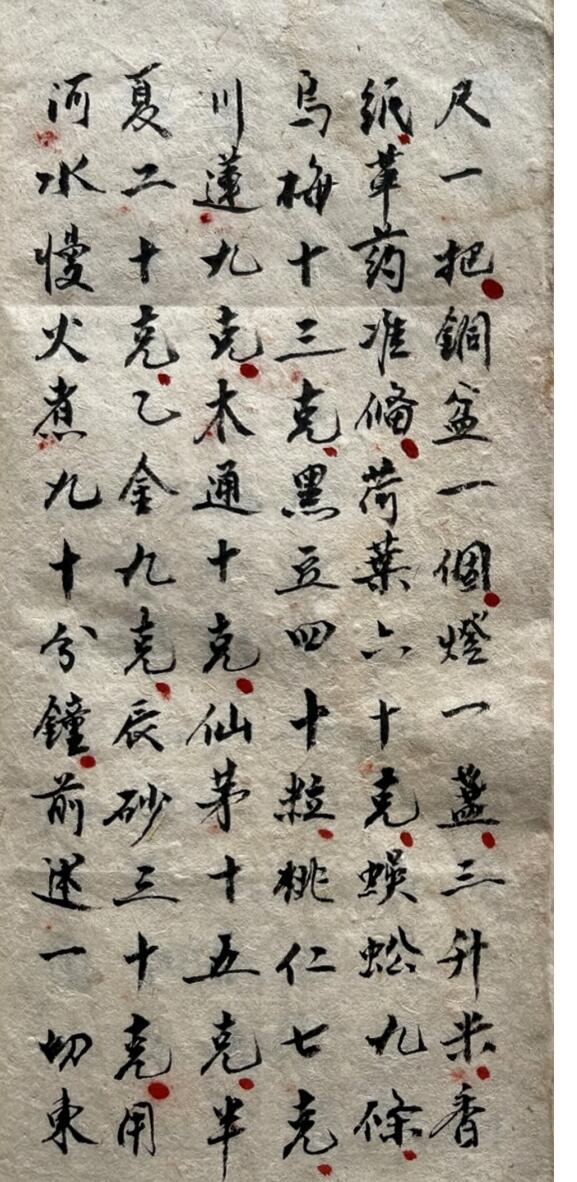 尺一把銅盆一個燈一盞三升米香
纸草药准備荷葉六十克蜈蚣九條
烏梅十三克黑豆四十粒桃仁七克
川蓮九克木通十克仙茅十五克半
夏二十克乙金九克辰砂三十克用
河水慢火煮九十分鐘前述一切東